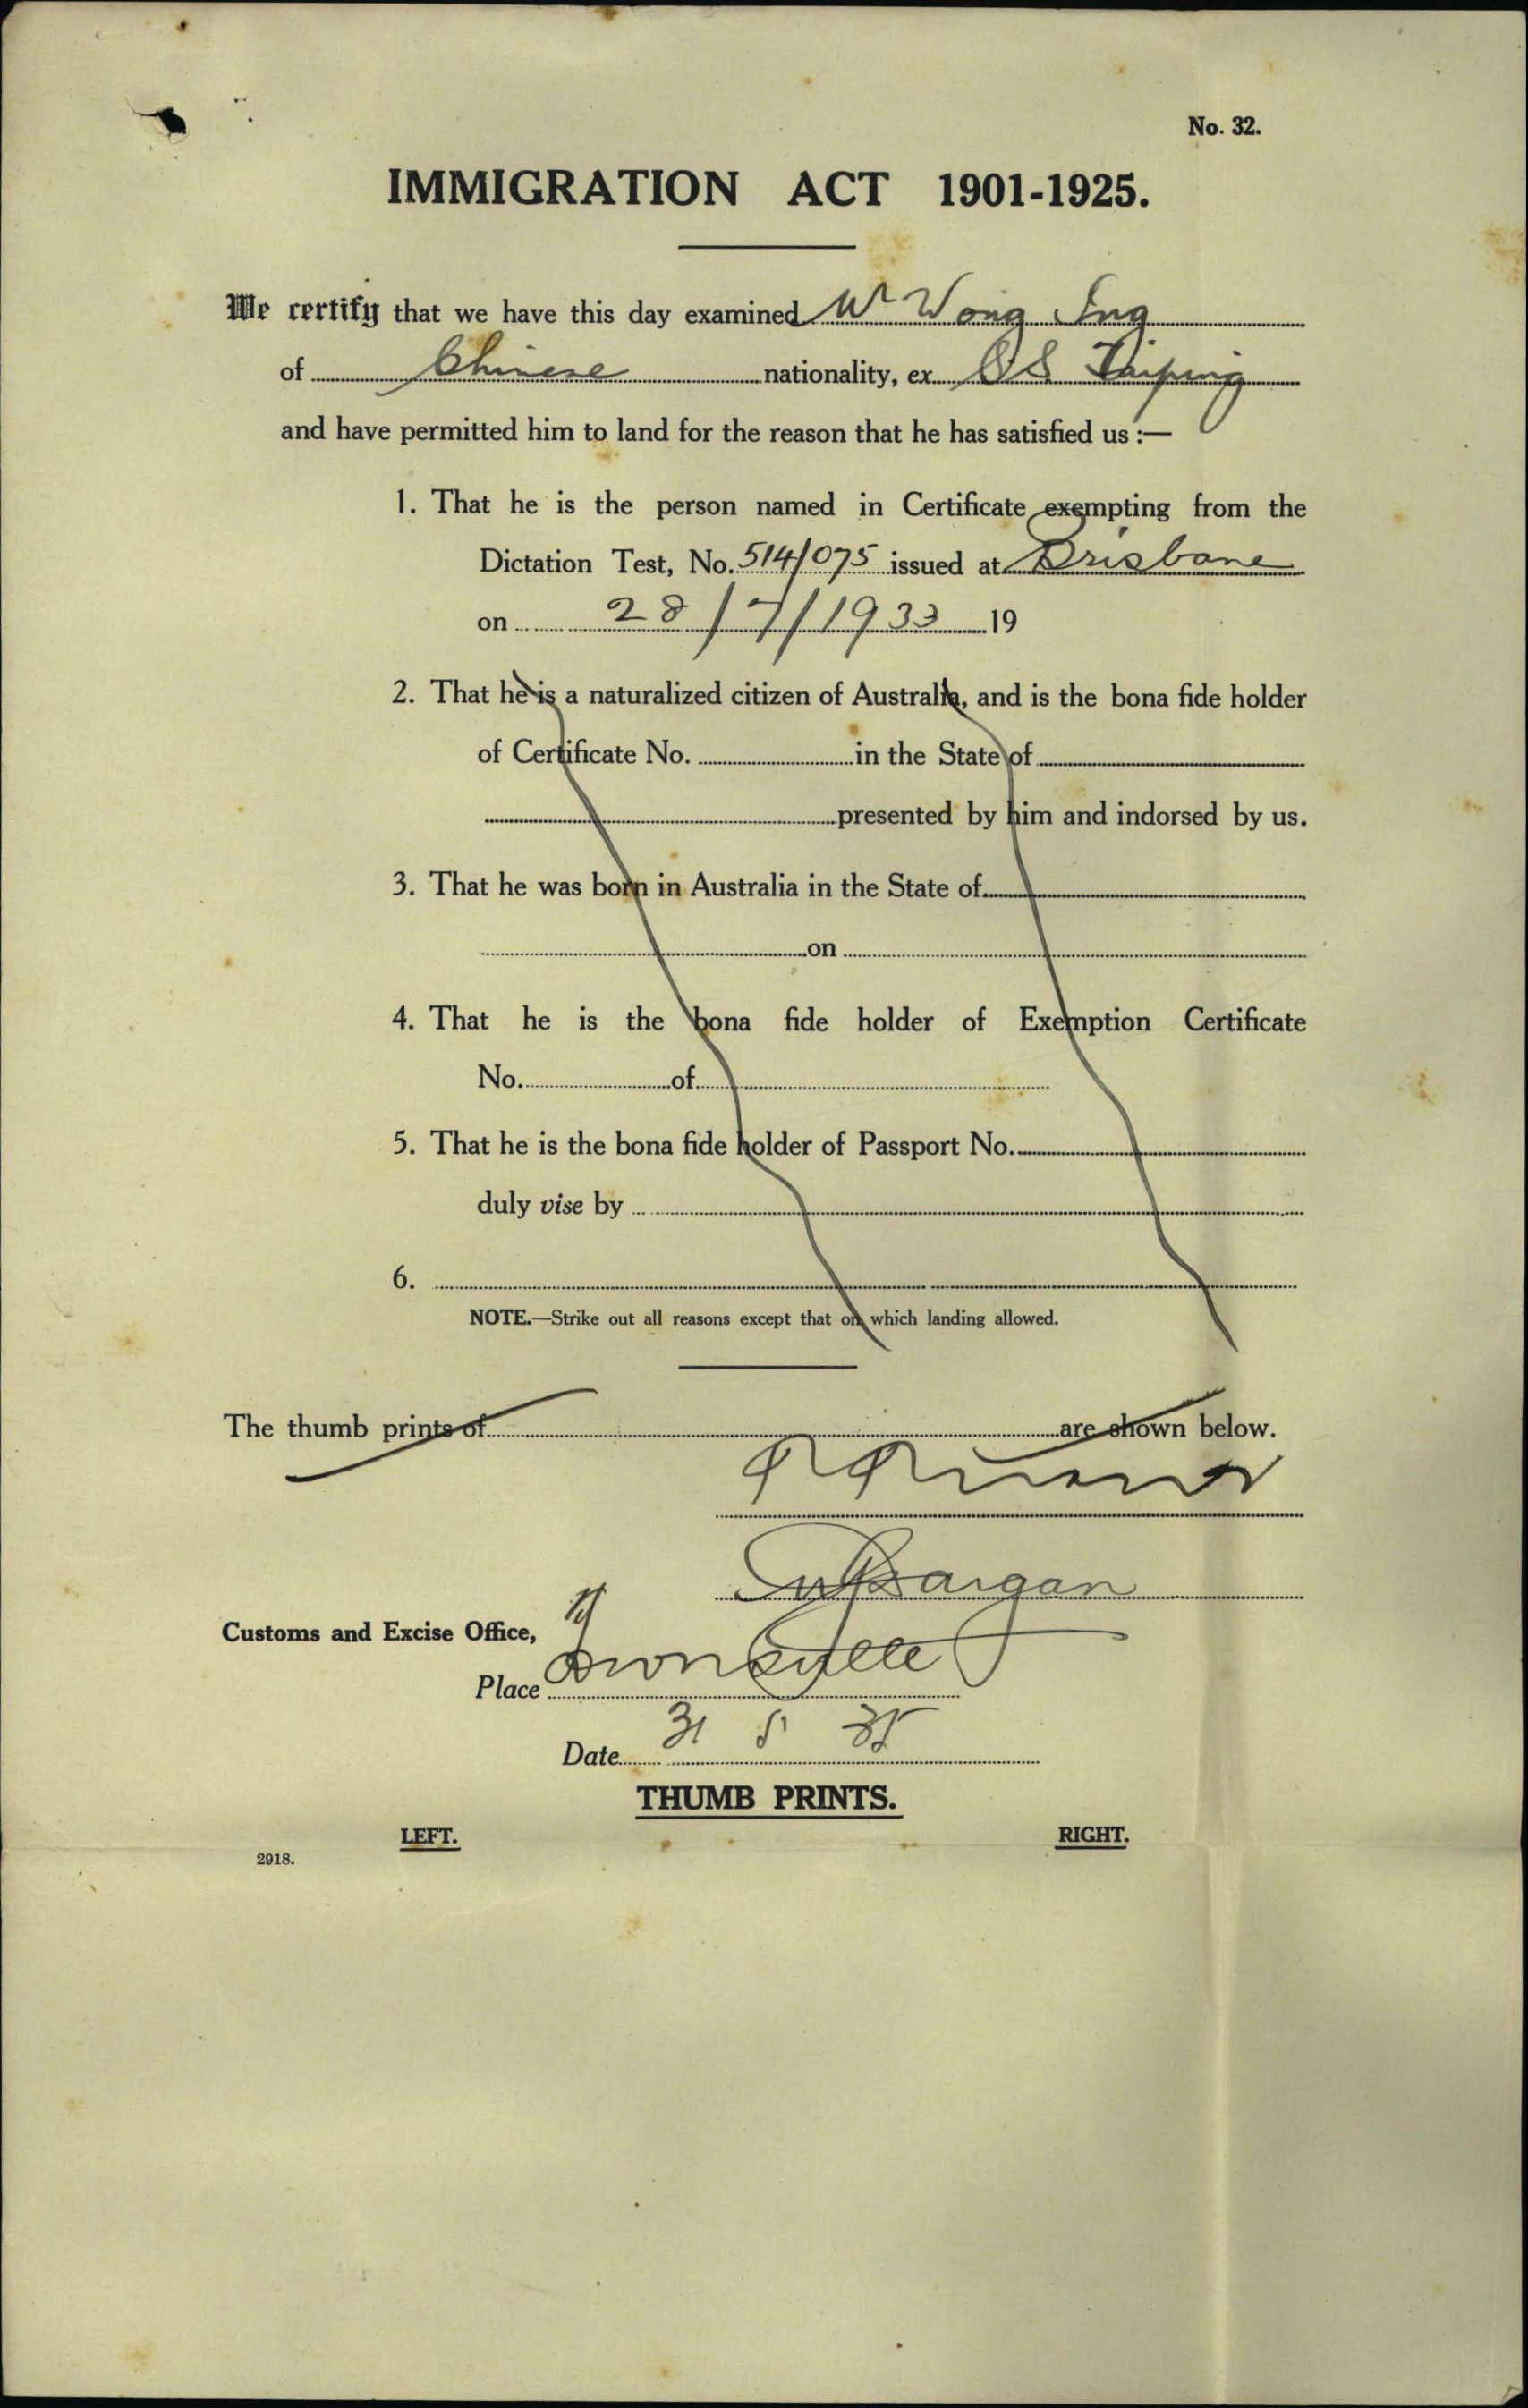 No. 32.
IMMIGRATION ACT 1901-1925.
We certify that we have this day examined Wr Wong Ing
of Chinese nationality, ex SS Taiping
and have permitted him to land for the reason that he has satisfied us :—
1. That he is the person named in Certificate exempting from the
Dictation Test, No. 514/075 issued at Brisbane
on 28/7/1933 19
2. That he is a naturalized citizen of Australia, and is the bona fide holder
of Certificate No. in the State of
presented by him and indorsed by us.
3. That he was born in Australia in the State of
on
4. That he is the bona fide holder of Exemption Certificate
No. of
5. That he is the bona fide holder of Passport No.
duly vise by
6.
NOTE.—Strike out all reasons except that on which landing allowed.
The thumb prints of are shown below.
Customs and Excise Office,
Place Townsville
Date 31 5 35
THUMB PRINTS.
LEFT. RIGHT.
2918.